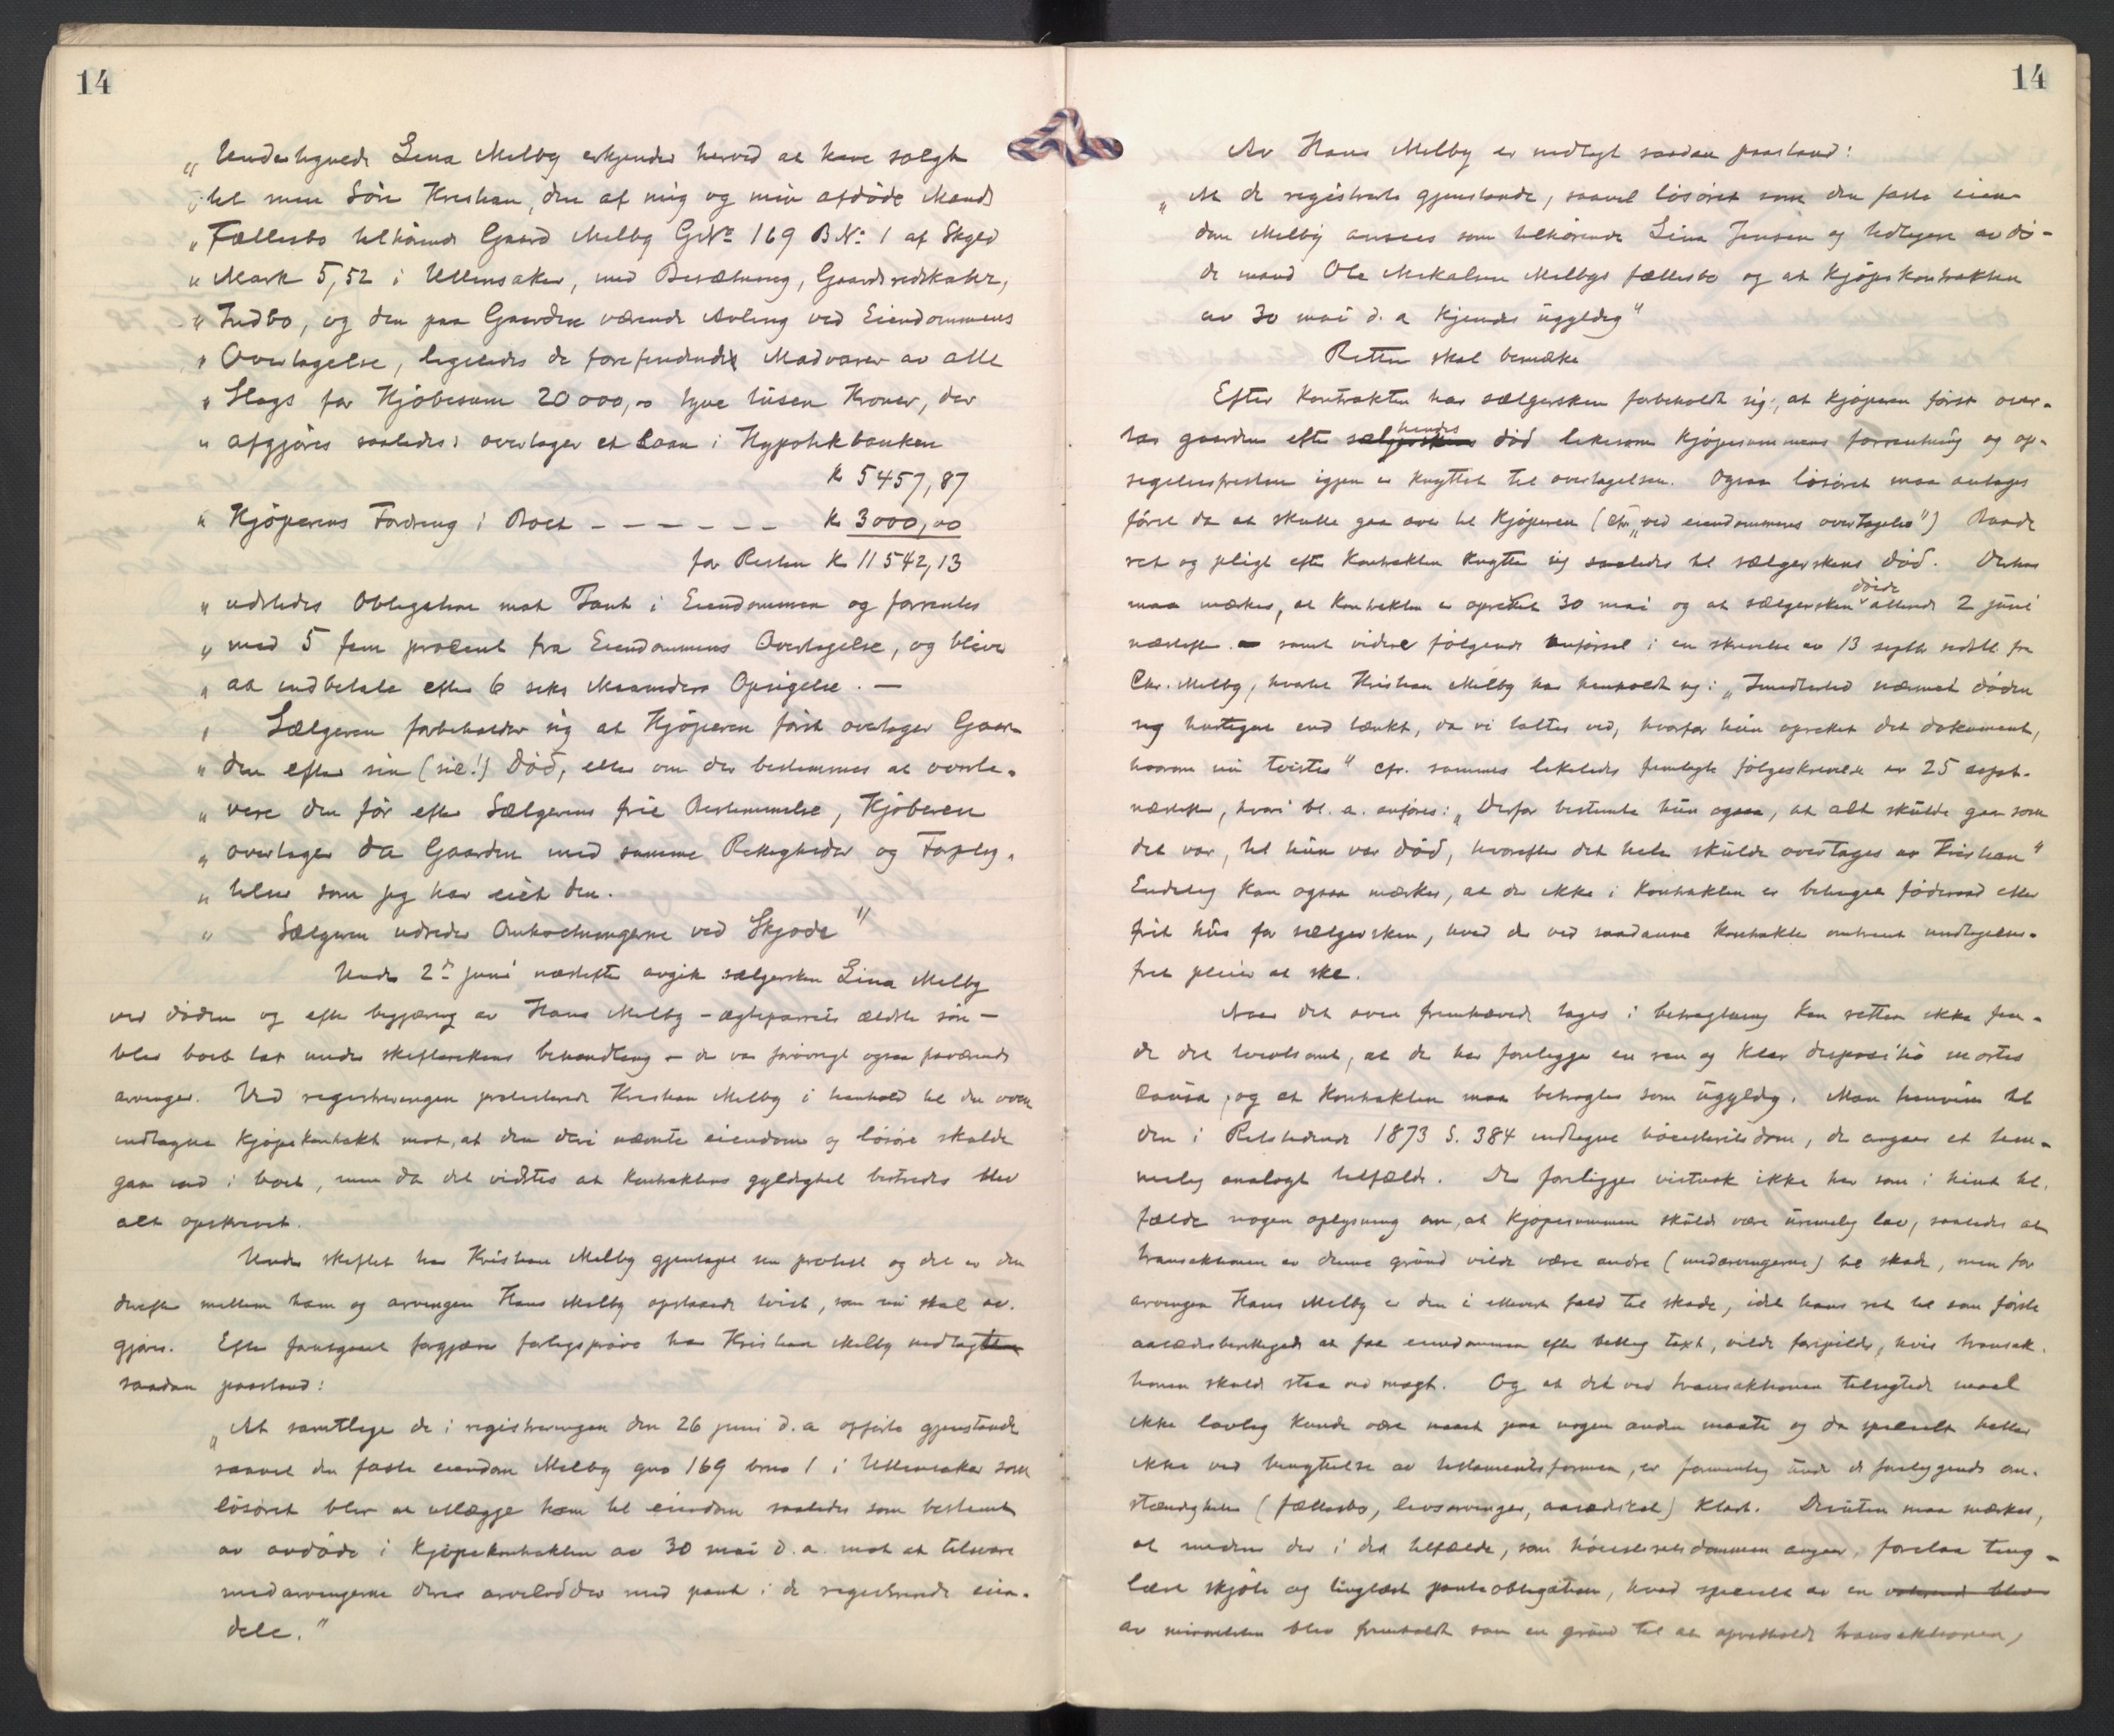 14
„Undertegnede Lina Melby erkjender herved at have solgt
„til min Sön Kristian, den af mig og min afdöde Mands
„Fællesbo tilhörende Gaard Melby GNo 169 BNo 1 af Skyld
„Mark 5,52 i Ullensaker, med Besætning, Gaardsredskaber,
„Indbo, og den paa Gaarden værende Avling ved Eiendommens
„Overtagelse, ligeledes de forefindende Madvarer av alle
„Slags for Kjöbesum 20000,00 tyve tusen Kroner, der
„afgjöres saaledes: overtager et Laan i Hypothekbanken
kr 5457,87
„Kjöperens Fordring i Boet – – – – – – kr 3000,00
for Resten kr 11542,13
„udstedes Obligation mot Pant i Eiendommen og forrentes
„med 5 fem procent fra Eiendommens Overtagelse, og bliver
„at indbetale efter 6 seks Maaneders Opsigelse. —
„Sælgeren forbeholder sig at Kjöperen först overtager Gaar-
„den efter sin (sic!) Död, eller om der bestemmes at overle-
„vere den för efter Sælgerens frie Bestemmelse, Kjöberen
„overtager da Gaarden med samme Rettigheder og Forplig-
„telser som jeg har eiet den.
„Sælgeren udreder Omkostningerne ved Skjöde"
Under 2den juni næstefter avgik sælgersken Lina Melby
ved döden og efter begjæring av Hans Melby – ægteparrets ældste sön –
blev boet tat under skifterettens behandling – der var forövrigt ogsaa fraværende
arvinger. Ved registreringen protesterede Kristian Melby i henhold til den oven
indtagne kjöpekontrakt mot, at den deri nævnte eiendom og lösöre skulde
gaa ind i boet, men da det vidstes at kontraktens gyldighet bestredes blev
alt opskrevet.
Under skiftet har Kristian Melby gjentaget sin protest og det er den
derefter mellem ham og arvingen Hans Melby opstaaede tvist, som nu skal av-
gjöres. Efter forutgaaet forgjæves forligspröve har Kristian Melby nedlagt
saadan paastand:
„At samtlige de i registreringen den 26 juni d.a. opförte gjenstande
saavel den faste eiendom Melby gno 169 bno 1 i Ullensaker som
lösöret blir at utlægge ham til eiendom saaledes som bestemt
av avdöde i kjöpekontrakten av 30 mai d.a. mot at tilsvare
medarvingerne deres arvelodder med pant i de registrerede eien-
dele."
14
Av Hans Melby er nedlagt saadan paastand:
„At de registrerte gjenstande, saavel lösöret som den faste eien-
dom Melby ansees som tilhörende Lina Jensen og tidligere avdö-
de mand Ole Mikalsen Melbys fællesbo og at kjöpekontrakten
av 30 mai d.a. kjendes ugyldig"
Retten skal bemerke
Efter kontrakten har sælgersken forbeholdt sig, at kjöperen först over-
tar gaarden efter hendes död likesom kjöpesummens forrentning og op-
sigelsesfristen igjen er knyttet til overtagelsen. Ogsaa lösöret maa antages
först da at skulle gaa over til kjöperen (cfr. „ved eiendommens overtagelse") Baade
ret og pligt efter kontrakten knytter sig saaledes til sælgerskens död. Derhos
maa merkes, at kontrakten er oprettet 30 mai og at sælgersken döde allerede 2 juni
næstefter – samt videre fölgende anförsel i en skrivelse av 13 septbr sidstl. fra
Chr. Melby, hvortil Kristian Melby har henholdt sig: „Imidlertid nærmet döden
sig hurtigere end tænkt, da vi taltes ved, hvorfor hun oprettet det dokument,
hvorom nu tvistes" cfr. sammes likeledes fremlagte fölgeskrivelse av 25 sept.
næstefter, hvori bl. a. anföres: „Derfor bestemte hun ogsaa, at alt skulde gaa som
det var, til hun var död, hvorefter det hele skulde overtages av Kristian"
Endelig kan ogsaa merkes, at der ikke i kontrakten er betinget föderaad eller
frit hus for sælgersken, hvad der ved saadanne kontrakter omtrent undtagelses-
frit pleier at ske.
Naar det oven fremhævede tages i betragtning kan retten ikke fin-
de det tvilsomt, at der her foreligger en ren og klar dispositio mortis
causa, og at kontrakten maa betragtes som ugyldig. Man henviser til
den i Retstidende 1873 S. 384 indtagne höiesteretsdom, der angaar et tem-
melig analogt tilfælde. Der foreligger vistnok ikke her som i hint til-
fælde nogen oplysning om, at kjöpesummen skulde være urimelig lav, saaledes at
transaktionen av denne grund vilde være andre (medarvingerne) til skade, men for
arvingen Hans Melby er den i ethvert fald til skade, idet hans ret til som förste
aasædesberettigede at faa eiendommen efter billig taxt, vilde forspildes, hvis transak-
tionen skulde staa ved magt. Og at det ved transaktionen tilsigtede maal
ikke lovlig kunde være naaet paa nogen anden maate og da specielt heller
ikke ved benyttelse av testamentsformen, er formentlig under de foreliggende om-
stændigheter (fællesbo, livsarvinger, aasædesret) klart. Desuten maa merkes,
at medens der i det tilfælde, som höiesteretsdommen angaar, forelaa ting-
læst skjöte og tinglæst panteobligation, hvad specielt av en
av minoriteten blev fremholdt som en grund til at opretholde transaktionen,